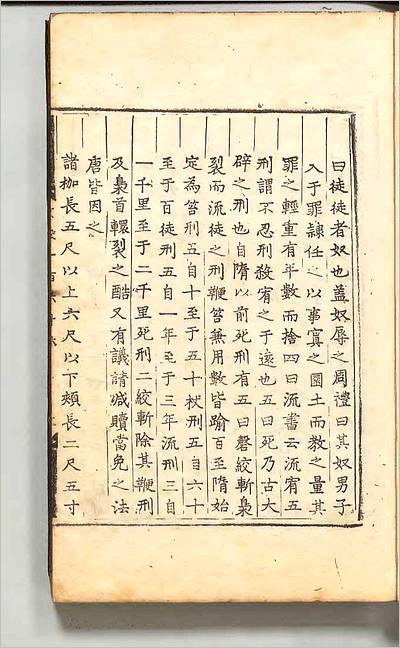 曰徒徒者奴也蓋奴辱之周禮曰其奴男子
入于罪隷任之以事寘之圜土而教之量其
罪之輕重有年數而捨四曰流書云流宥五
刑謂不忍刑殺宥之于遠也五曰死乃古大
辟之刑也自隋以前死刑有五曰磬絞斬梟
裂而流徒之刑鞭笞兼用數皆踰百至隋始
定為笞刑五自十至于五十杖刑五自六十
至于百徒刑五自一年至于三年流刑三自
一千里至于二千里死刑二絞斬除其鞭刑
及梟首轘裂之酷又有議請减贖當免之法
唐皆因之
諸枷長五尺以上六尺以下頰長二尺五寸